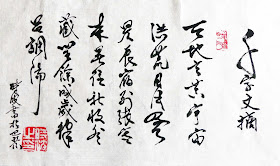 千字文摘
天地玄黄宇宙
洪荒日月盈
昃辰宿列張寒
来暑往秋收冬
藏閏餘成歲律
吕調陽